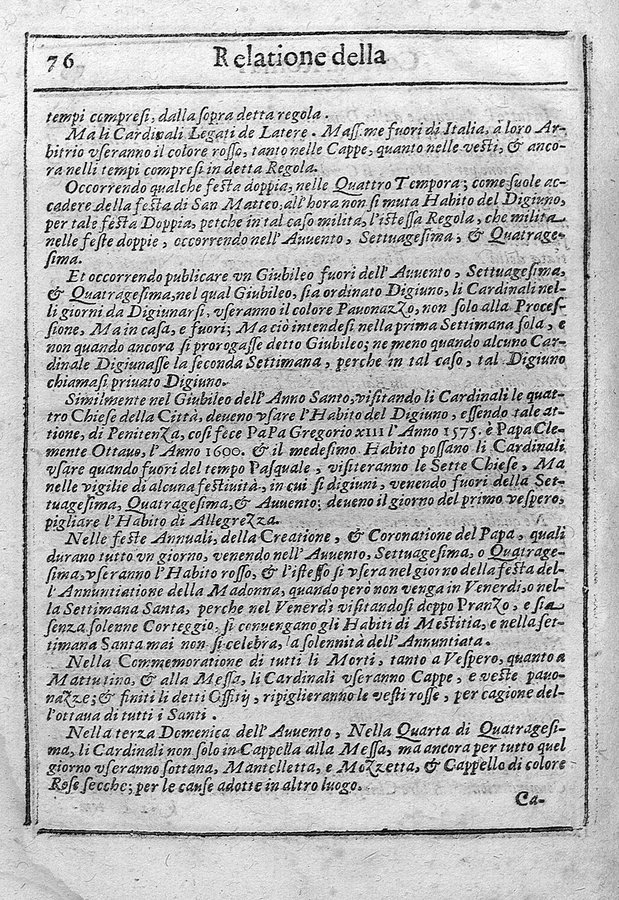 76 Relatione della
tempi compresi, dalla sopra detta regola.
Ma li Cardinali Legati de Latere. Mass.me fuori di Italia, à loro Ar-
bitrio vseranno il colore rosso, tanto nelle Cappe, quanto nelle vesti, & anco-
ra nelli tempi compresi in detta Regola.
Occorrendo qualche festa doppia, nelle Quattro Tempora; come suole ac-
cadere della festa di San Matteo, all'hora non si muta Habito del Digiuno,
per tale festa Doppia, petche in tal caso milita, l'istessa Regola, che milita
nelle feste doppie, occorrendo nell'Auuento, Settuagesima, & Quatrage-
sima.
Et occorrendo publicare vn Giubileo fuori dell'Auuento, Settuagesima,
& Quatragesima, nel qual Giubileo, sia ordinato Digiuno, li Cardinali nel-
li giorni da Digiunarsi, vseranno il colore Pauonazzo, non solo alla Proces-
sione, Ma in casa, e fuori; Ma ciò intendesi nella prima Settimana sola, e
non quando ancora si prorogasse detto Giubileo; ne meno quando alcuno Car-
dinale Digiunasse la seconda Settimana, perche in tal caso, tal Digiuno
chiamasi priuato Digiuno.
Similmente nel Giubileo dell'Anno Santo, visitando li Cardinali le quat-
tro Chiese della Città, deueno vsare l'Habito del Digiuno, essendo tale at-
tione, di Penitenza, così fece PaPa Gregorio xiii l'Anno 1575. è Papa Cle-
mente Ottauo, l'Anno 1600. & il medesimo Habito possano li Cardinali
vsare quando fuori del tempo Pasquale, visiteranno le Sette Chiese, Ma
nelle vigilie di alcuna festiuità, in cui si digiuni, venendo fuori della Set-
tuagesima, Quatragesima, & Auuento; deueno il giorno del primo vespero,
pigliare l'Habito di Allegrezza.
Nelle feste Annuali, della Creatione, & Coronatione del Papa, quali
durano tutto vn giorno, venendo nell'Auuento, Settuagesima, o Quatrage-
sima, vseranno l'Habito rosso, & l'istesso si vsera nel giorno della festa del-
l'Annuntiatione della Madonna, quando però non venga in Venerdì, o nel-
la Settimana Santa, perche nel Venerdì visitandosi doppo Pranzo, e sia
senza solenne Corteggio, si conuengano gli Habiti di Mestitia, e nella set-
timana Santa mai non si celebra, la solennità dell'Annuntiata.
Nella Commemoratione di tutti li Morti, tanto a Vespero, quanto a
Mattutino, & alla Messa, li Cardinali vseranno Cappe, e veste pauo-
nazze; & finiti li detti Offitij, ripiglieranno le vesti rosse, per cagione del-
l'ottaua di tutti i Santi.
Nella terza Domenica dell'Auuento, Nella Quarta di Quatragesi-
ma, li Cardinali non solo in Cappella alla Messa, ma ancora per tutto quel
giorno vseranno sottana, Mantelletta, e Mozzetta, & Cappello di colore
Rose secche; per le cause adotte in altro luogo.
Ca-